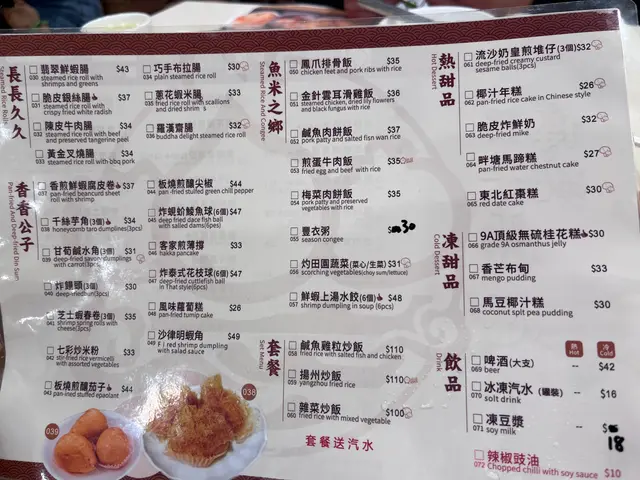 長長久久
Steamed Rice Rolls
翡翠鮮蝦腸 $43
030 steamed rice roll with
shrimps and greens
脆皮銀絲腸 $37
031 steamed rice roll with
crispy fried white radish
陳皮牛肉腸 $34
032 steamed rice roll with beef
and preserved tangerine peel
黃金叉燒腸 $34
033 steamed rice roll with bbq pork
巧手布拉腸 $30
034 plain steamed rice roll
蔥花蝦米腸 $33
035 fried rice roll with scallions
and dried shrimp
羅漢齋腸 $32
036 buddha delight steamed rice roll
香香公子
Pan-fried And Deep-fried Dim Sum
香煎鮮蝦腐皮卷 $37
037 pan-fried beancurd sheet
roll with shrimp
千絲芋角(3個) $34
038 honeycomb taro dumplings(3pc)
甘荀鹹水角(3個) $31
039 deep-fried savory dumplings
with carrot(3pcs)
炸饅頭(3個) $30
040 deep-fried bun(3pcs)
芝士蝦春卷(3個) $35
041 shrimp spring rolls with
cheese(3pcs)
七彩炒米粉 $33
042 stir-fried rice vermicelli
板燒煎釀茄子 $44
043 pan-fried stuffed eggplant
板燒煎釀尖椒 $44
044 pan-fried stuffed green chili pepper
炸蜆蚧鯪魚球(6個) $47
045 deep-fried dace fish ball
with salted clams(6pcs)
客家煎薄撐 $33
046 hakka pancake
炸泰式花枝球(6個) $47
047 deep-fried cuttlefish ball
in Thai style(6pcs)
風味蘿蔔糕 $26
048 pan-fried turnip cake
沙律明蝦角 $49
049 fried shrimp dumpling
with salad sauce
039
038
魚米之鄉
Steamed Rice And Congee
鳳爪排骨飯 $35
050 chicken feet and pork ribs with rice
金針雲耳滑雞飯 $36
051 steamed chicken, dried lily flowers
and black fungus with rice
鹹魚肉餅飯 $37
052 pork patty and salted fish with rice
煎蛋牛肉飯 $35
053 fried egg and beef with rice
梅菜肉餅飯 $35
054 pork patty and preserved
vegetables with rice
豐衣粥 30
055 season congee
灼田園蔬菜(菜心/生菜) $31
056 scorching vegetables(choy sum/lettuce)
鮮蝦上湯水餃(6個) $48
057 shrimp dumpling in soup (6pcs)
套餐
Set Menu
鹹魚雞粒炒飯 $110
058 fried rice with salted fish and chicken
揚州炒飯 $110
059 yangzhou fried rice
雜菜炒飯 $100
060 fried rice with mixed vegetable
套餐送汽水
熱甜品
Hot Dessert
流沙奶皇煎堆仔(3個) $32
061 deep-fried creamy custard
sesame balls(3pcs)
椰汁年糕 $26
062 pan-fried rice cake in Chinese style
脆皮炸鮮奶 $32
063 deep-fried milke
畔塘馬蹄糕 $27
064 pan-fried water chestnut cake
東北紅棗糕 $30
065 red date cake
凍甜品
Cold Dessert
9A頂級無硫桂花糕 $30
066 grade 9A osmanthus jelly
香芒布甸 $33
067 mengo pudding
馬豆椰汁糕 $30
068 coconut split pea pudding
飲品
Drink
熱 Hot 冷 Cold
啤酒(大支) -- $42
069 beer
冰凍汽水(罐裝) -- $16
070 solt drink
凍豆漿 -- $ 18
071 soy milk
辣椒豉油
072 Chopped chilli with soy sauce $10